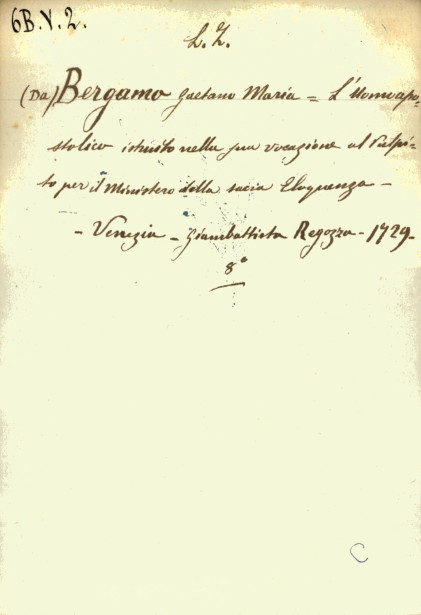 6B.V.2.
L.Z.
(Da) Bergamo Gaetano Maria = L'Uomo apo-
stolico istruito nella sua vocazione al Pulpi-
to per il Ministero della sacra Eloquenza -
- Venezia - Giambattista Regozza - 1729 -
8°
C